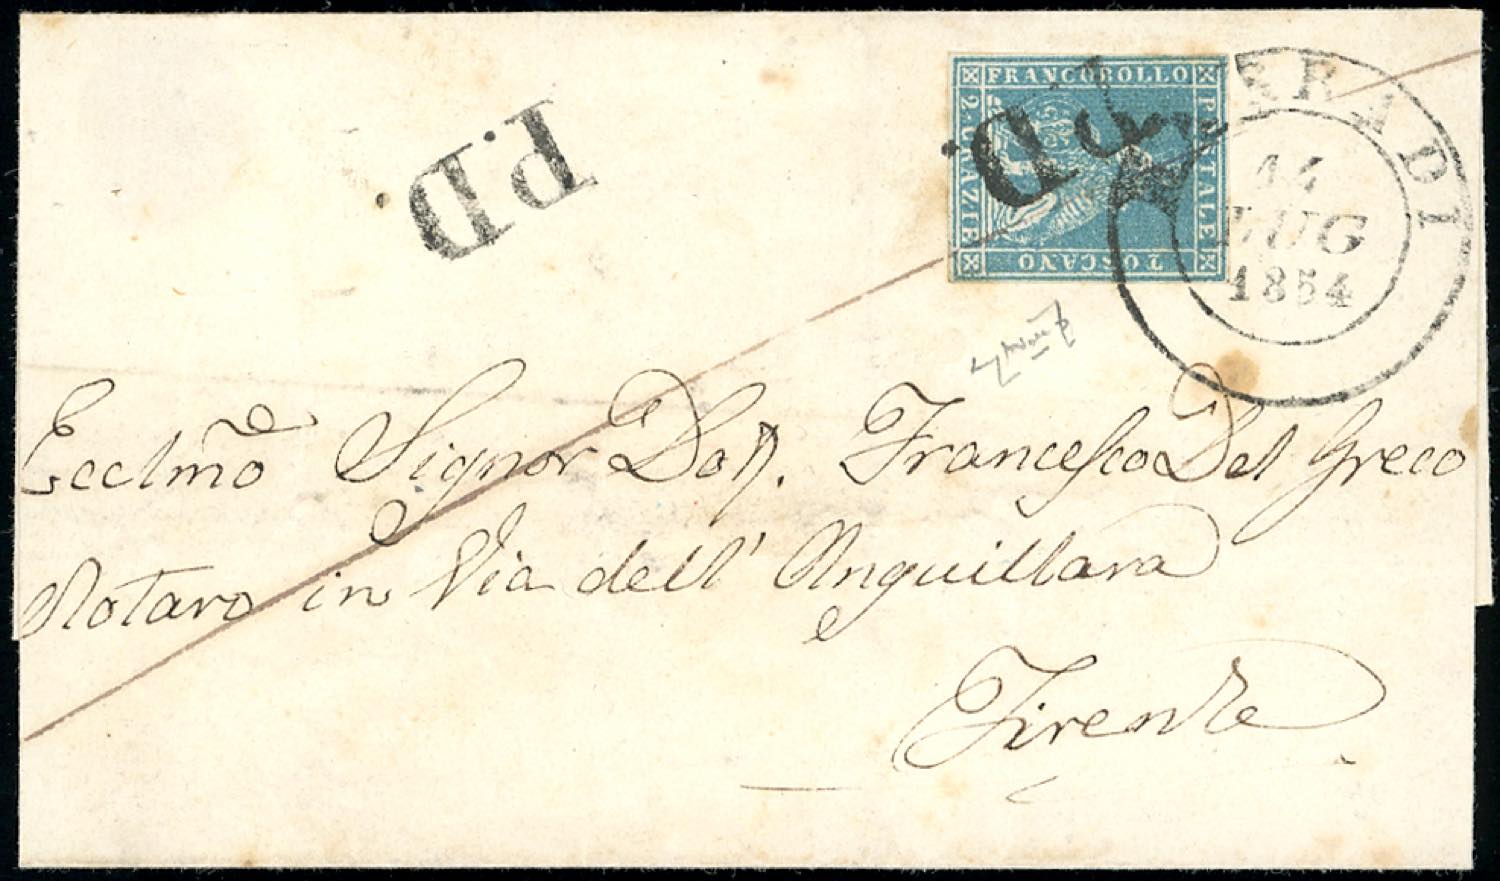 P.D.
FRANCOBOLLO
POSTALE
TOSCANO
2.CRAZIE
P.D.
MARRADI
14
LUG
1854
Ecclmo Signor Dott. Francesco Del Greco
Notaro in Via dell' Anguillara
Firenze